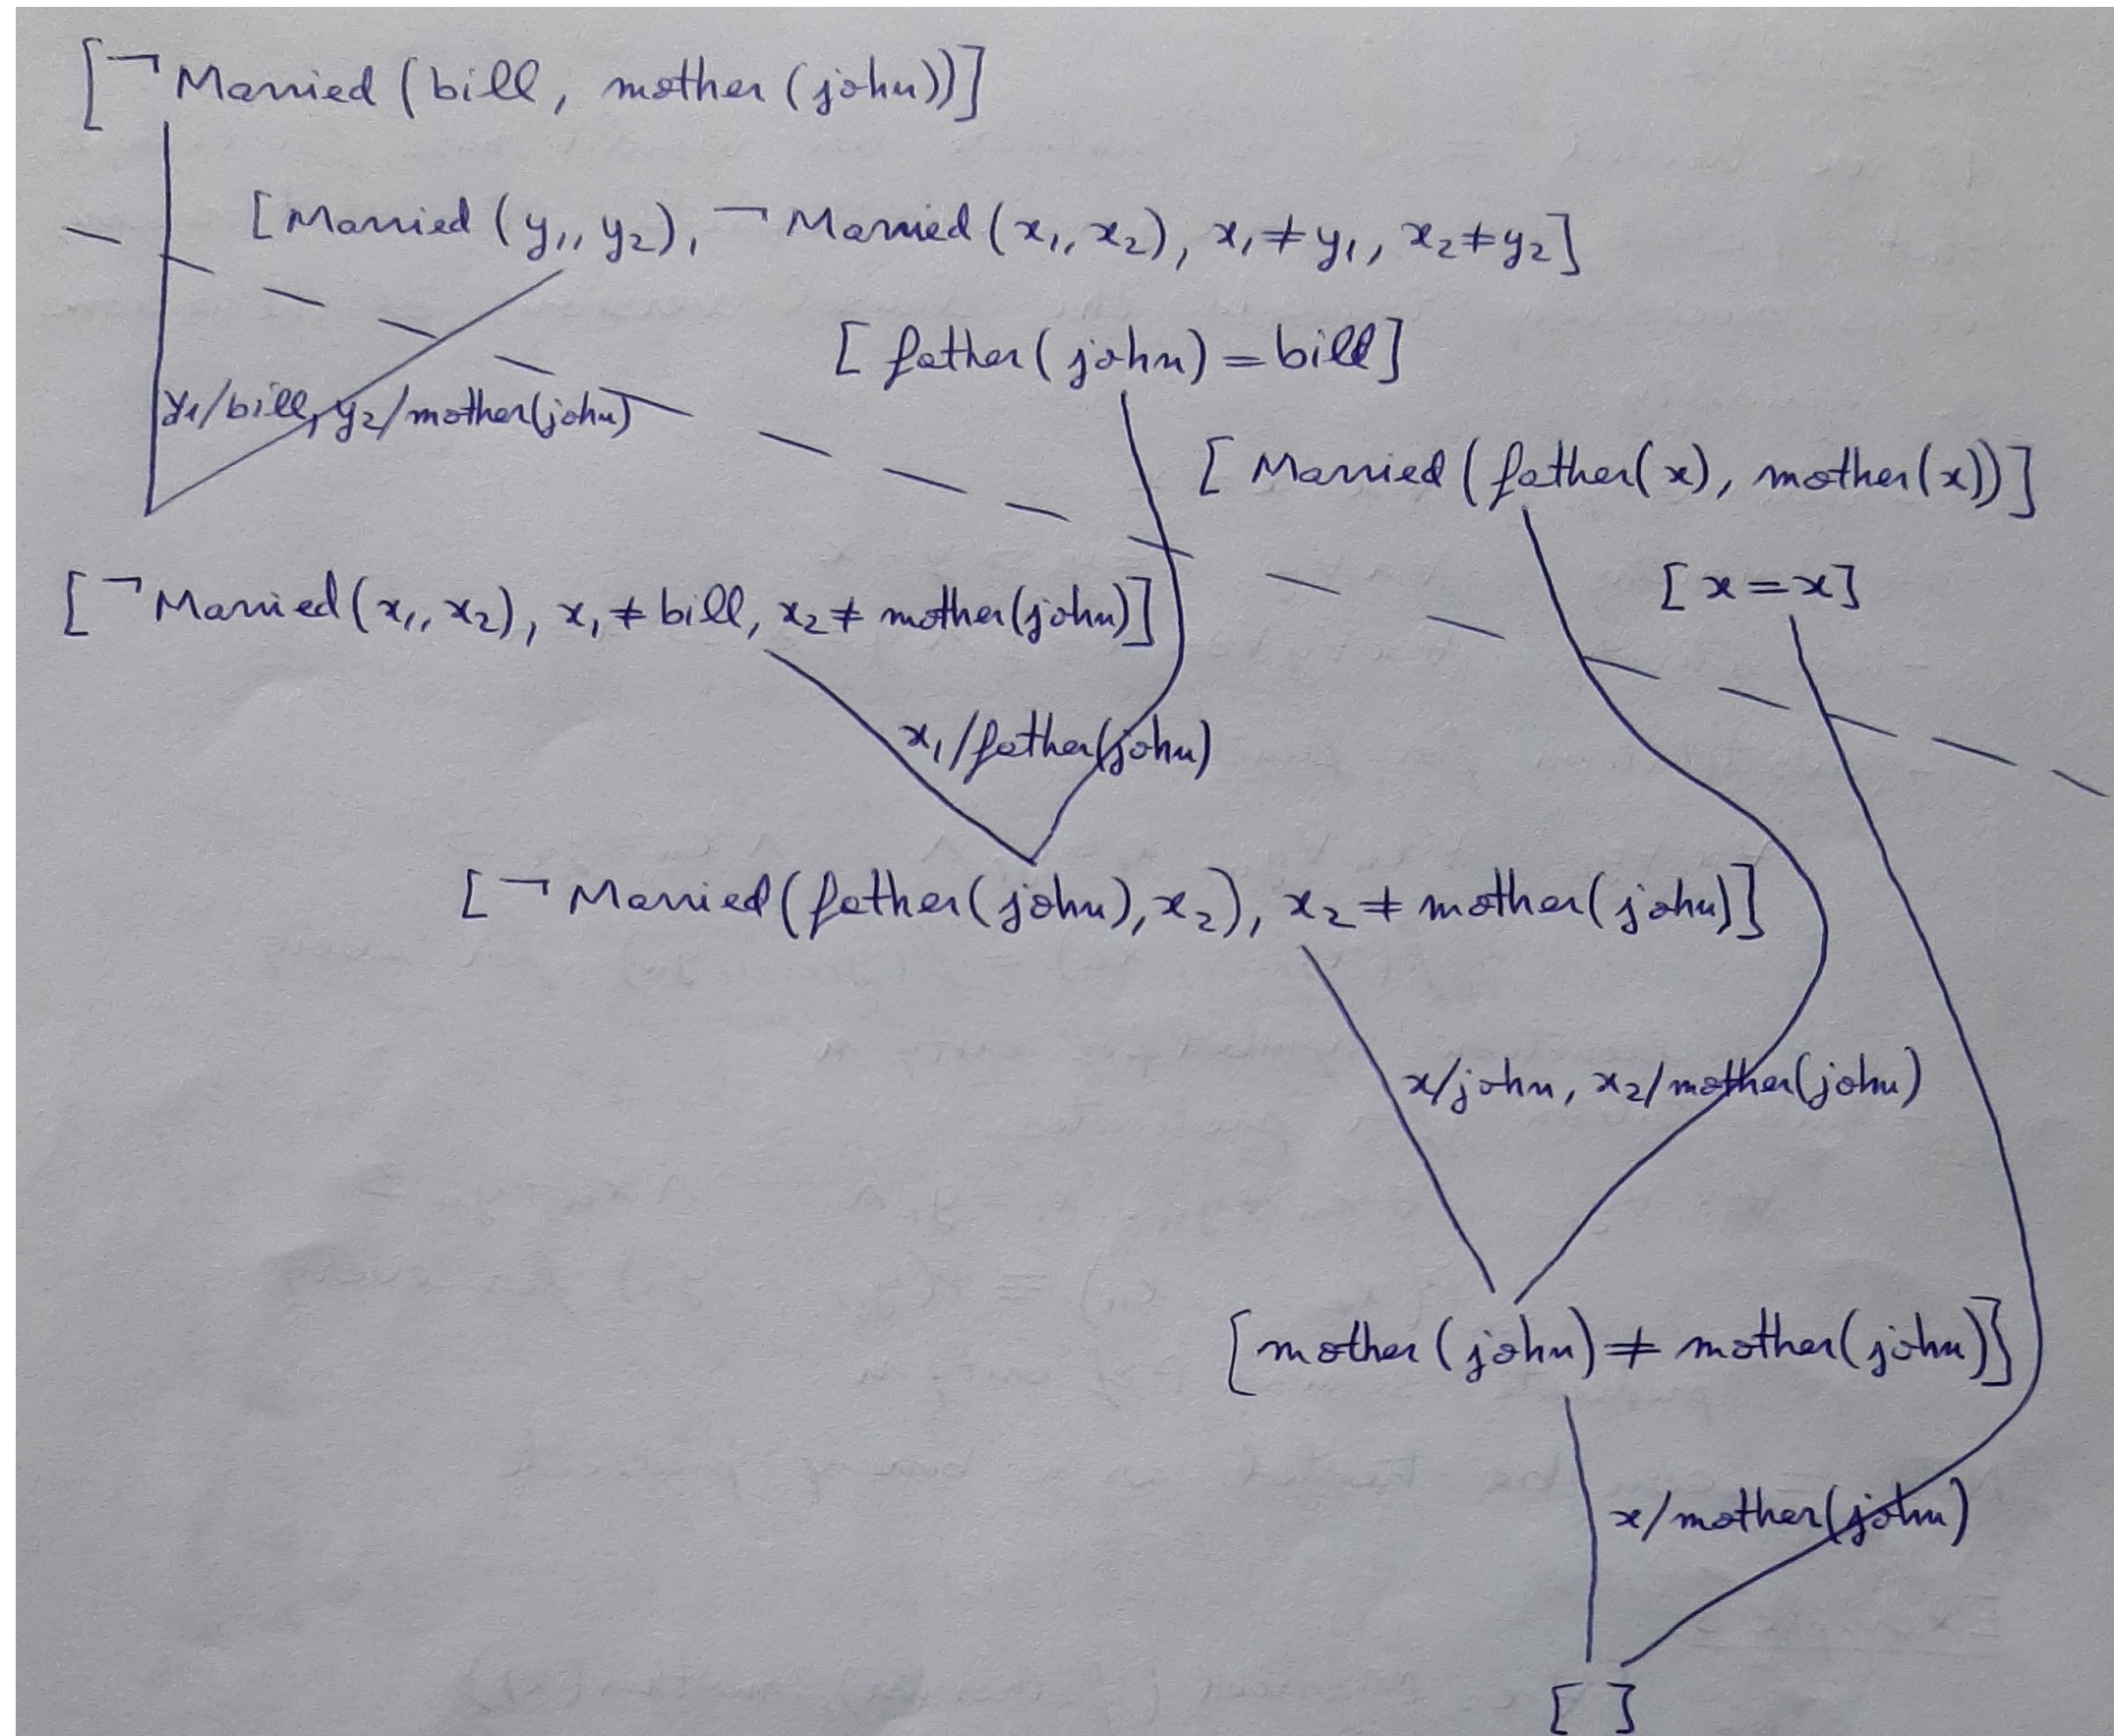 [¬Married(bill, mother(john))]
[Married(y₁, y₂), ¬Married(x₁, x₂), x₁≠y₁, x₂≠y₂]
[father(john)=bill]
y₁/bill, y₂/mother(john)
[Married(father(x), mother(x))]
[x=x]
[¬Married(x₁, x₂), x₁≠bill, x₂≠mother(john)]
x₁/father(john)
[¬Married(father(john), x₂), x₂≠mother(john)]
x/john, x₂/mother(john)
[mother(john)≠mother(john)]
x/mother(john)
[ ]